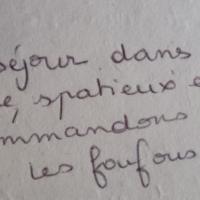 séjour dans
é, spatieux e
mmandons
les foufous